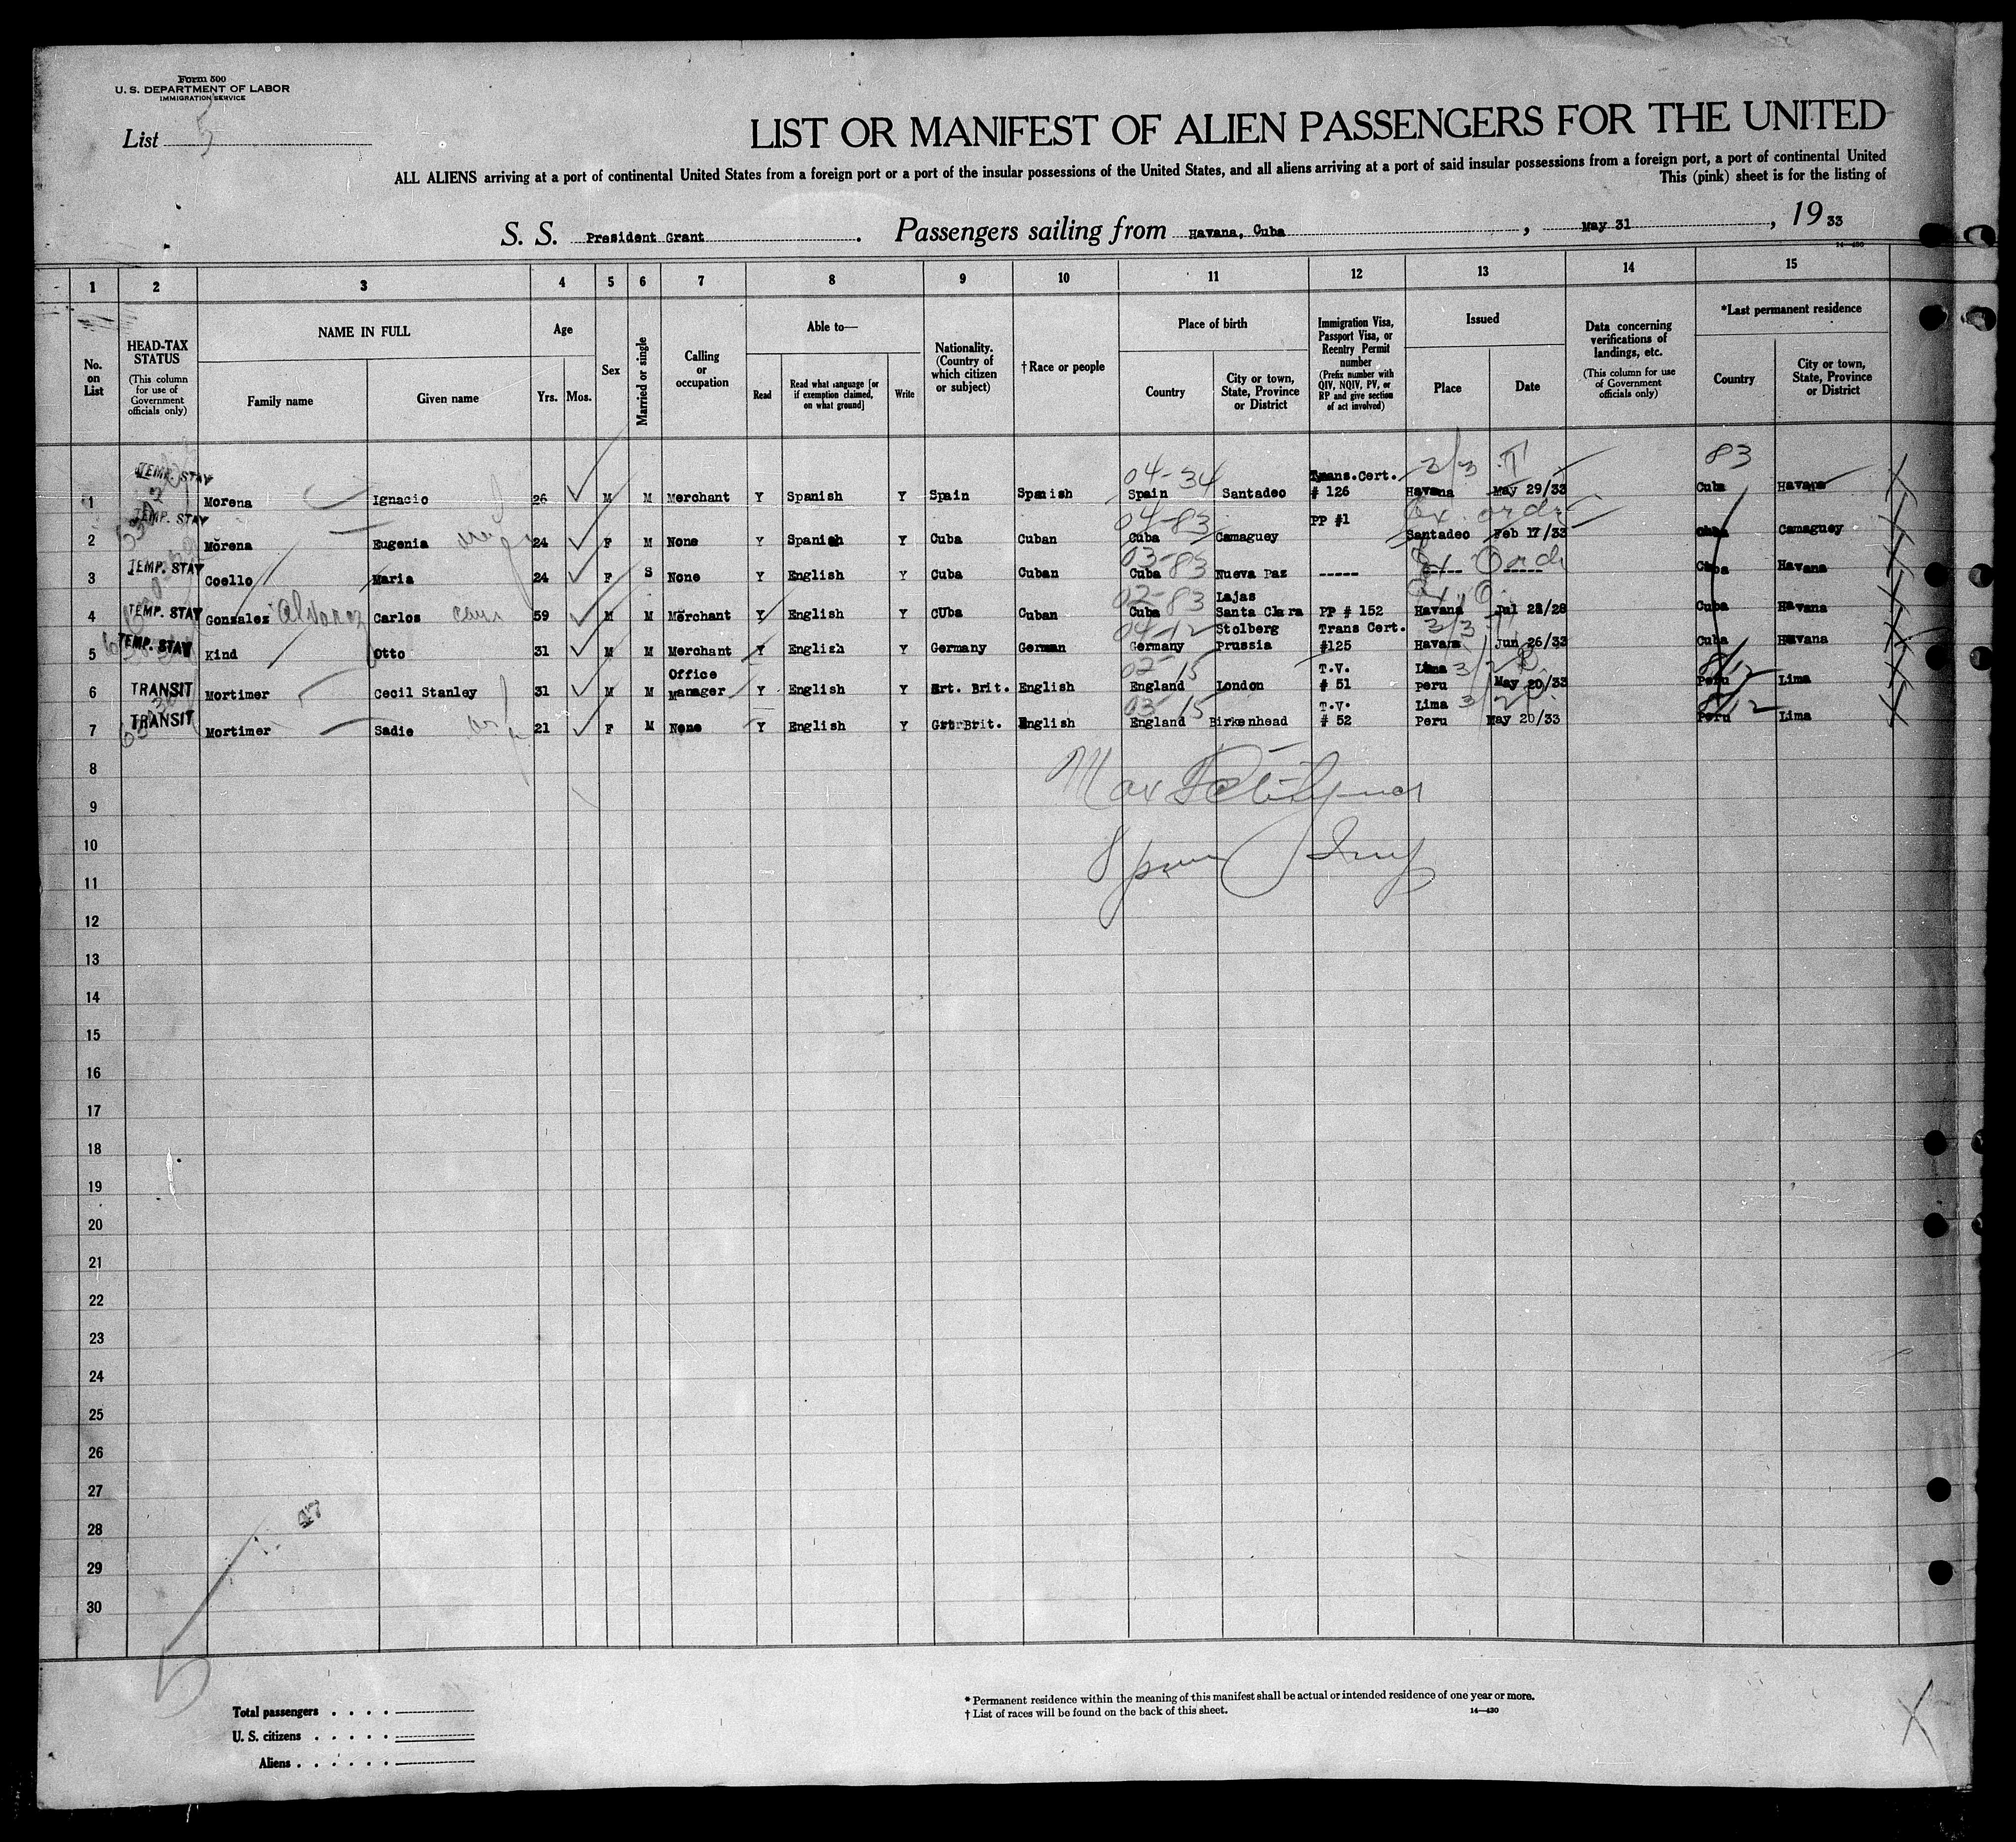 Form 500
U. S. DEPARTMENT OF LABOR
IMMIGRATION SERVICE
List 5
LIST OR MANIFEST OF ALIEN PASSENGERS FOR THE UNITED
ALL ALIENS arriving at a port of continental United States from a foreign port or a port of the insular possessions of the United States, and all aliens arriving at a port of said insular possessions from a foreign port, a port of continental United
This (pink) sheet is for the listing of
S. S. President Grant. Passengers sailing from Havana, Cuba, May 31, 1933
14—430
1 2 3 4 5 6 7 8 9 10 11 12 13 14 15
No. on List
HEAD-TAX STATUS (This column for use of Government officials only)
NAME IN FULL
Family name
Given name
Age
Yrs. Mos.
Sex
Married or single
Calling or occupation
Able to—
Read
Read what language [or if exemption claimed, on what ground]
Write
Nationality. (Country of which citizen or subject)
† Race or people
Place of birth
Country
City or town, State, Province or District
Immigration Visa, Passport Visa, or Reentry Permit number (Prefix number with QIV, NQIV, PV, or RP and give section of act involved)
Issued
Place
Date
Data concerning verifications of landings, etc. (This column for use of Government officials only)
*Last permanent residence
Country
City or town, State, Province or District
04-34 3/3 T 83
1 TEMP. STAY Morena Ignacio 26 M M Merchant Y Spanish Y Spain Spanish Spain Santadeo Trans.Cert. # 126 Havana May 29/33 Cuba Havana
04-83
2 TEMP. STAY Morena Eugenia 24 F M None Y Spanish Y Cuba Cuban Cuba Camaguey PP #1 Santadeo Feb 17/33 Cuba Camaguey
03-83
3 TEMP. STAY Coello Maria 24 F S None Y English Y Cuba Cuban Cuba Nueva Paz ----- ----- ----- Cuba Havana
02-83
4 TEMP. STAY Gonzalez Alvarez Carlos 59 M M Merchant Y English Y CUba Cuban Cuba Lajas Santa Clara PP # 152 Havana Jul 28/28 Cuba Havana
04-12 3/3
5 TEMP. STAY Kind Otto 31 M M Merchant Y English Y Germany German Germany Stolberg Prussia Trans Cert. #125 Havana Jun 26/33 Cuba Havana
02-15
6 TRANSIT Mortimer Cecil Stanley 31 M M Office Manager Y English Y Brt. Brit. English England London T.V. # 51 Lima Peru May 20/33 Peru Lima
03-15
7 TRANSIT Mortimer Sadie 21 F M None Y English Y Grt Brit. English England Birkenhead T.V. # 52 Lima Peru May 20/33 Peru Lima
8
9
10
11
12
13
14
15
16
17
18
19
20
21
22
23
24
25
26
27
28
29
30
47
Total passengers
U. S. citizens
Aliens
* Permanent residence within the meaning of this manifest shall be actual or intended residence of one year or more.
† List of races will be found on the back of this sheet.
14—430